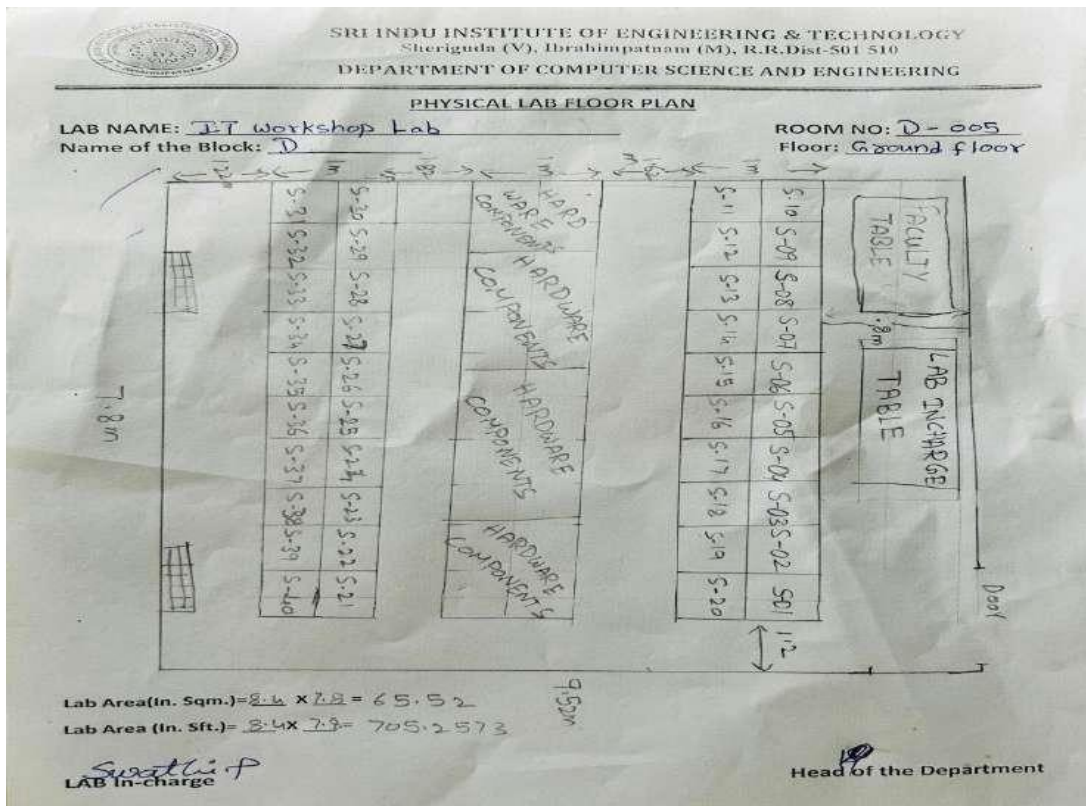 SRI INDU INSTITUTE OF ENGINEERING & TECHNOLOGY
Sheriguda (V), Ibrahimpatnam (M), R.R.Dist-501 510
DEPARTMENT OF COMPUTER SCIENCE AND ENGINEERING
PHYSICAL LAB FLOOR PLAN
LAB NAME: I.T Workshop Lab
ROOM NO: D-005
Name of the Block: D
Floor: Ground floor
1m
1m
1m
S-31 S-32 S-33 S-34 S-35 S-36 S-37 S-38 S-39 S-40
S-30 S-29 S-28 S-27 S-26 S-25 S-24 S-23 S-22 S-21
HARD
WARE
COMPONENTS
HARDWARE
COMPONENTS
HARDWARE
COMPONENTS
HARDWARE
COMPONENTS
S-11 S-12 S-13 S-14 S-15 S-16 S-17 S-18 S-19 S-20
S-10 S-09 S-08 S-07 S-06 S-05 S-04 S-03 S-02 S01
FACULTY
TABLE
.8m
LAB INCHARGE
TABLE
Door
1.2
7.8m
9.52m
Lab Area(In. Sqm.)=8.4 x 7.8= 65.52
Lab Area (In. Sft.)= 8.4x 7.8= 705.2573
Swathi P
LAB In-charge
Head of the Department